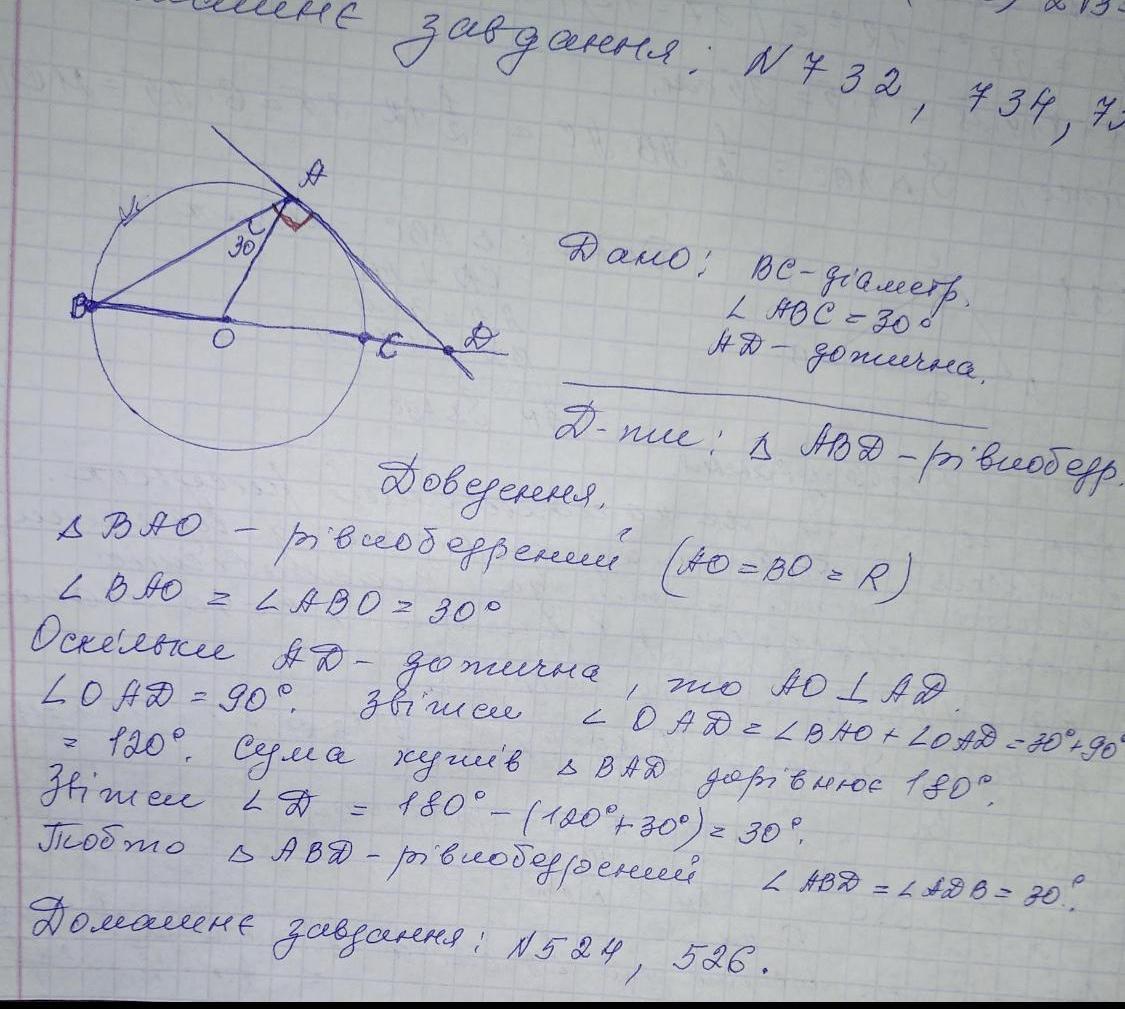 завдання: N 732, 734, 73
A
30
B
O
C
D
Дано: BC – діаметр.
∠ ABC = 30°
AD – дотична.
Д-ти: △ ABD – рівнобедр.
Доведення.
△ BAO – рівнобедрений (AO = BO = R)
∠ BAO = ∠ ABO = 30°
Оскільки AD – дотична, то AO ⊥ AD.
∠ OAD = 90°. Звідси ∠ OAD = ∠BAO + ∠OAD = 30° + 90°
= 120°. Сума кутів △ BAD дорівнює 180°.
Звідси ∠ D = 180° – (120° + 30°) = 30°.
Тобто △ ABD – рівнобедрений ∠ ABD = ∠ ADB = 30°.
Домашнє завдання: N 524, 526.